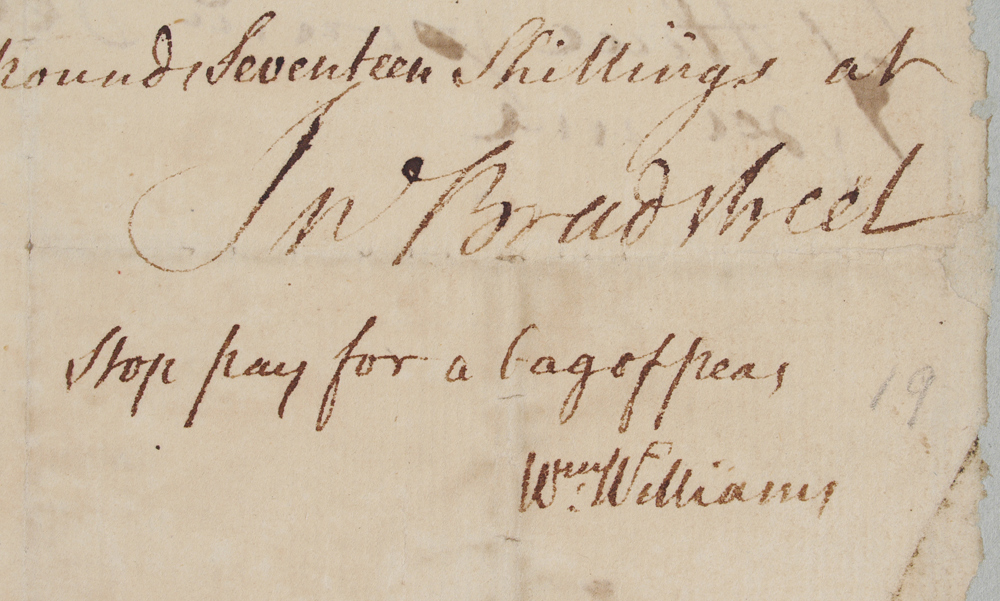 pounds Seventeen Shillings at
Jnº Bradstreet
Stop pay for a bag of peas
19
Wm. Williams